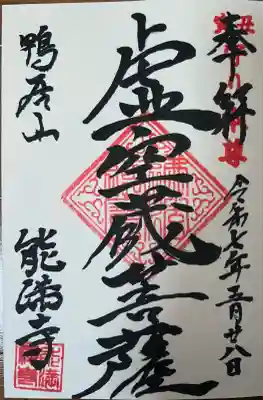 奉拝
令和七年五月廿八日
虚空蔵菩薩
鴨居山
能満寺